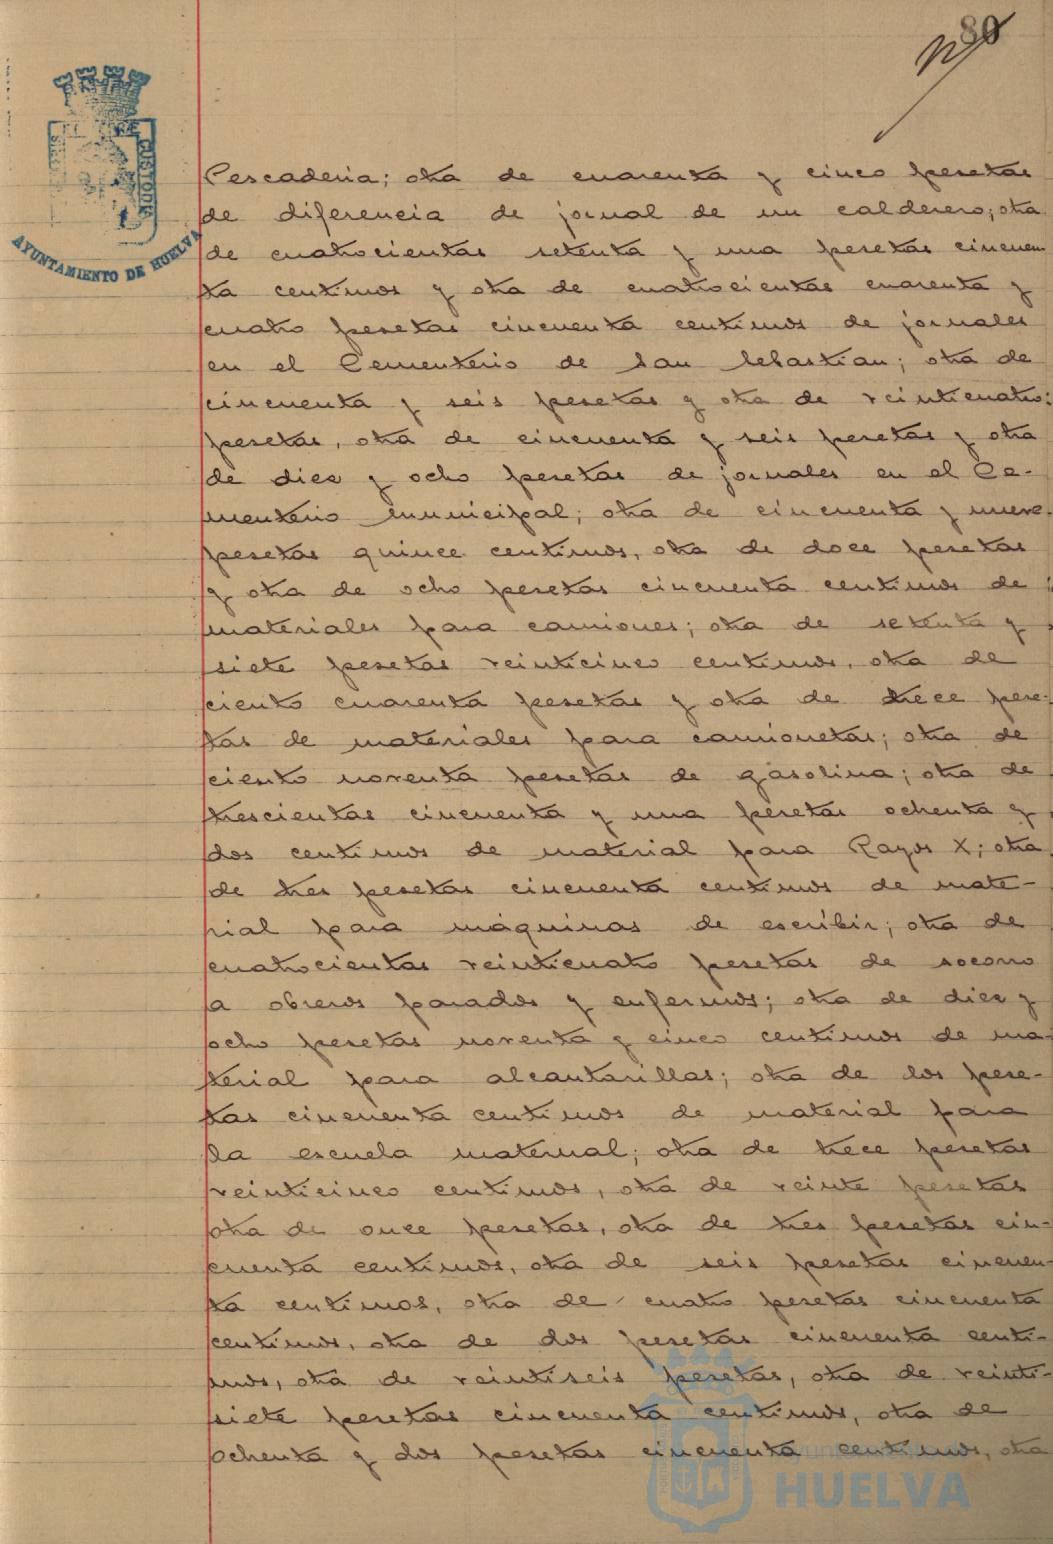 80
AYUNTAMIENTO DE HUELVA
Pescaderia; otra de cuarenta y cinco pesetas
de diferencia de jornal de un calderero; otra
de cuatrocientas setenta y una pesetas cincuen
ta centimos y otra de cuatrocientas cuarenta y
cuatro pesetas cincuenta centimos de jornales
en el Cementerio de San Sebastian; otra de
cincuenta y seis pesetas y otra de veinticuatro
pesetas, otra de cincuenta y seis pesetas y otra
de diez y ocho pesetas de jornales en el Ce-
menterio municipal; otra de cincuenta y nueve
pesetas quince centimos, otra de doce pesetas
y otra de ocho pesetas cincuenta centimos de
materiales para camiones; otra de setenta y
siete pesetas veinticinco centimos, otra de
ciento cuarenta pesetas y otra de trece pese-
tas de materiales para camionetas; otra de
ciento noventa pesetas de gasolina; otra de
trescientas cincuenta y una pesetas ochenta y
dos centimos de material para Rayos X; otra
de tres pesetas cincuenta centimos de mate-
rial para máquinas de escribir; otra de
cuatrocientas veinticuatro pesetas de socorro
a obreros parados y enfermos; otra de diez y
ocho pesetas noventa y cinco centimos de ma-
terial para alcantarillas; otra de dos pese-
tas cincuenta centimos de material para
la escuela maternal; otra de trece pesetas
veinticinco centimos, otra de veinte pesetas
otra de once pesetas, otra de tres pesetas cin-
cuenta centimos, otra de seis pesetas cincuen-
ta centimos, otra de cuatro pesetas cincuenta
centimos, otra de dos pesetas cincuenta centi-
mos, otra de veintiseis pesetas, otra de veinti-
siete pesetas cincuenta centimos, otra de
ochenta y dos pesetas cincuenta centimos, otra
HUELVA